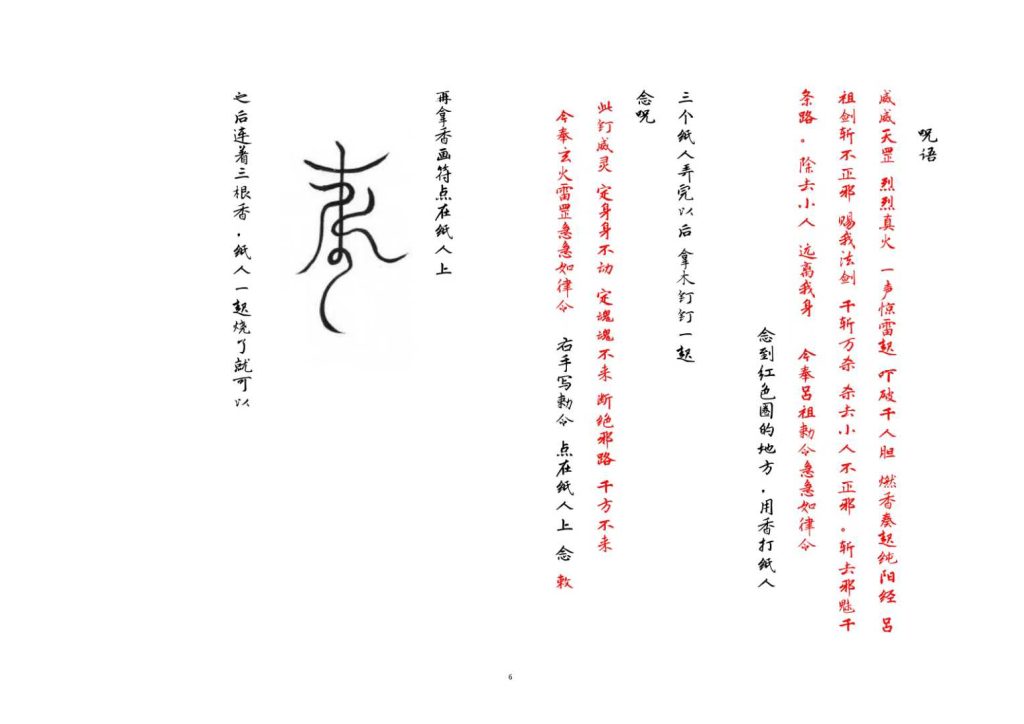 咒语
威威天罡 烈烈真火 一声惊雷起 吓破千人胆 燃香奏起纯阳经 吕
祖剑斩不正邪 赐我法剑 千斩万杀 杀去小人不正邪。斩去邪魅千
条路。除去小人 远离我身 今奉吕祖勅令急急如律令
念到红色圈的地方，用香打纸人
三个纸人弄完以后 拿木钉钉一起
念咒
此钉威灵 定身身不动 定魂魂不来 断绝邪路 千方不来
今奉玄火雷罡急急如律令 右手写勅令 点在纸人上 念 敕
再拿香画符点在纸人上
之后连着三根香，纸人一起烧了就可以
6